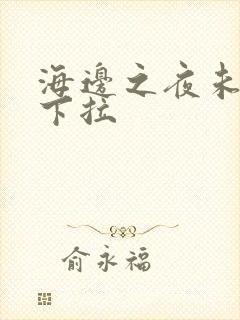 海邊之夜未
下拉
俞永福